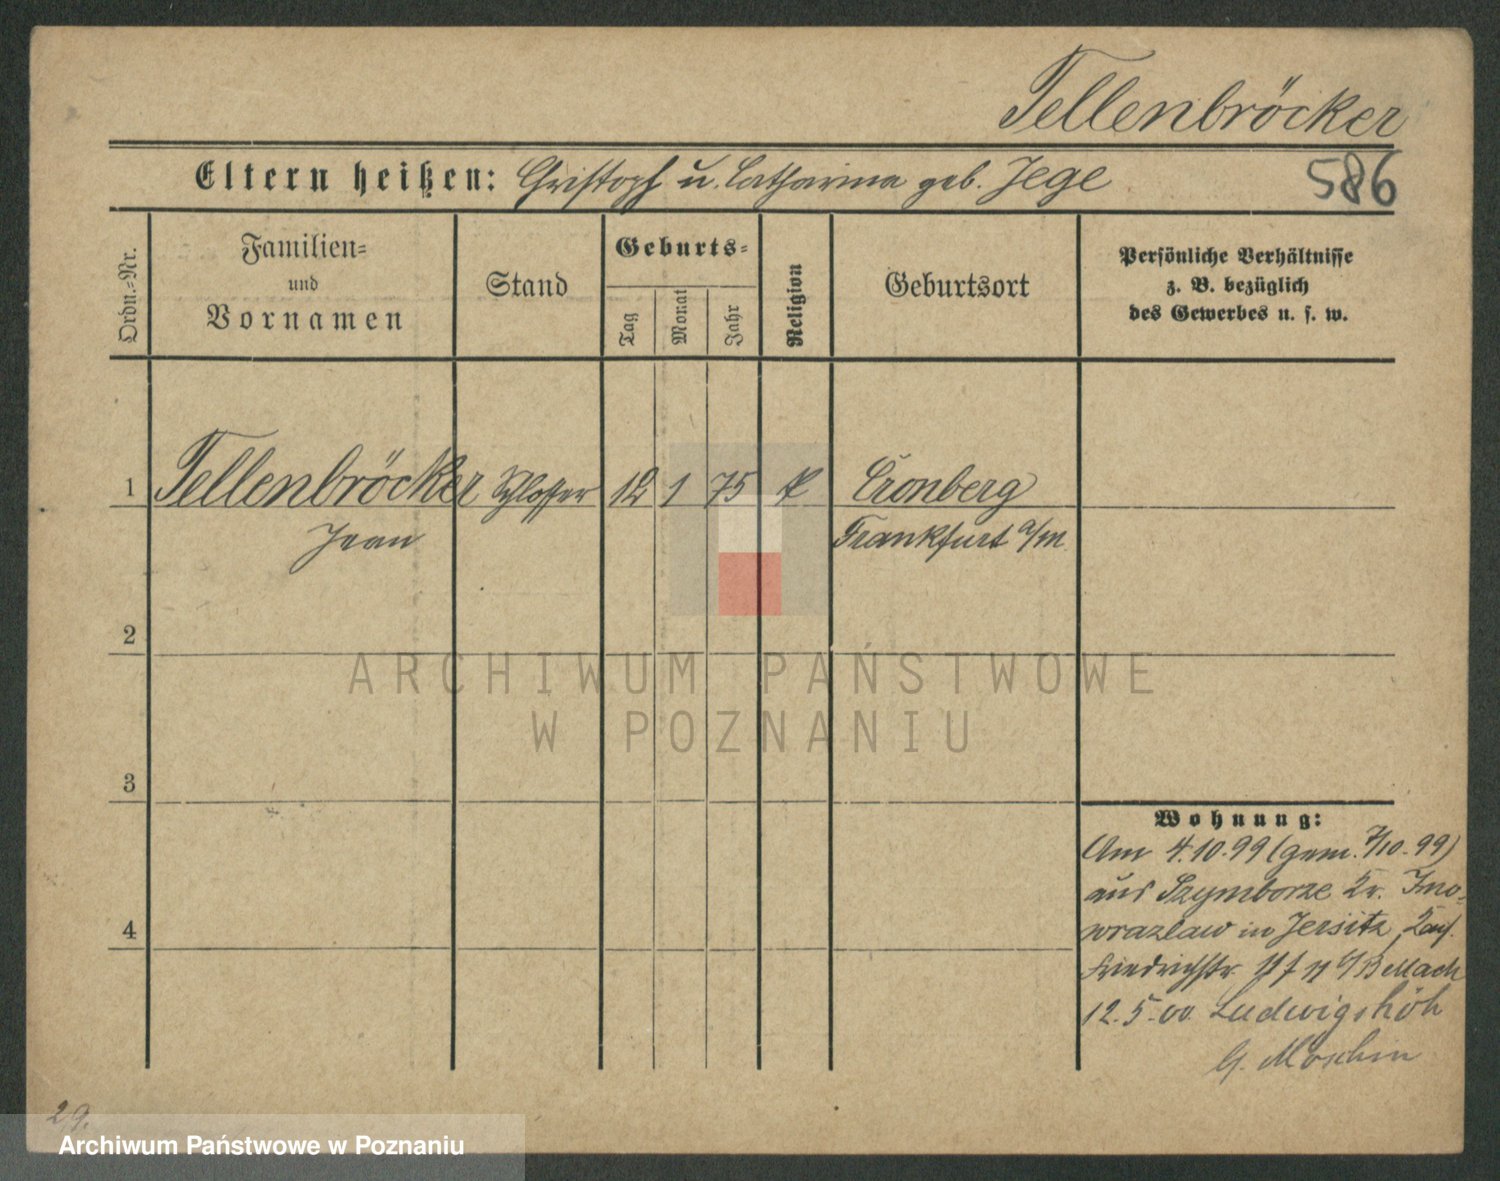 Tellenbröcker
Eltern heißen: Christoph u. Catharina geb. Jege
586
Ordn.-Nr.
Familien-
und
Vornamen
Stand
Geburts-
Tag
Monat
Jahr
Religion
Geburtsort
Persönliche Verhältnisse
z. B. bezüglich
des Gewerbes u. s. w.
1 Tellenbröcker Schlosser 12 1 75 Cronberg
Jean Frankfurt a/m
2
3
4
ARCHIWUM PAŃSTWOWE
W POZNANIU
Wohnung:
Am 4.10.99 (gem. 7/10.99)
aus Szymborze Kr. Ino-
wrazlaw in Jersitz, Kais.
Friedrichstr. b/ Mach
12.5.00 Ludwigshöh
G. Moschin
29.
Archiwum Państwowe w Poznaniu